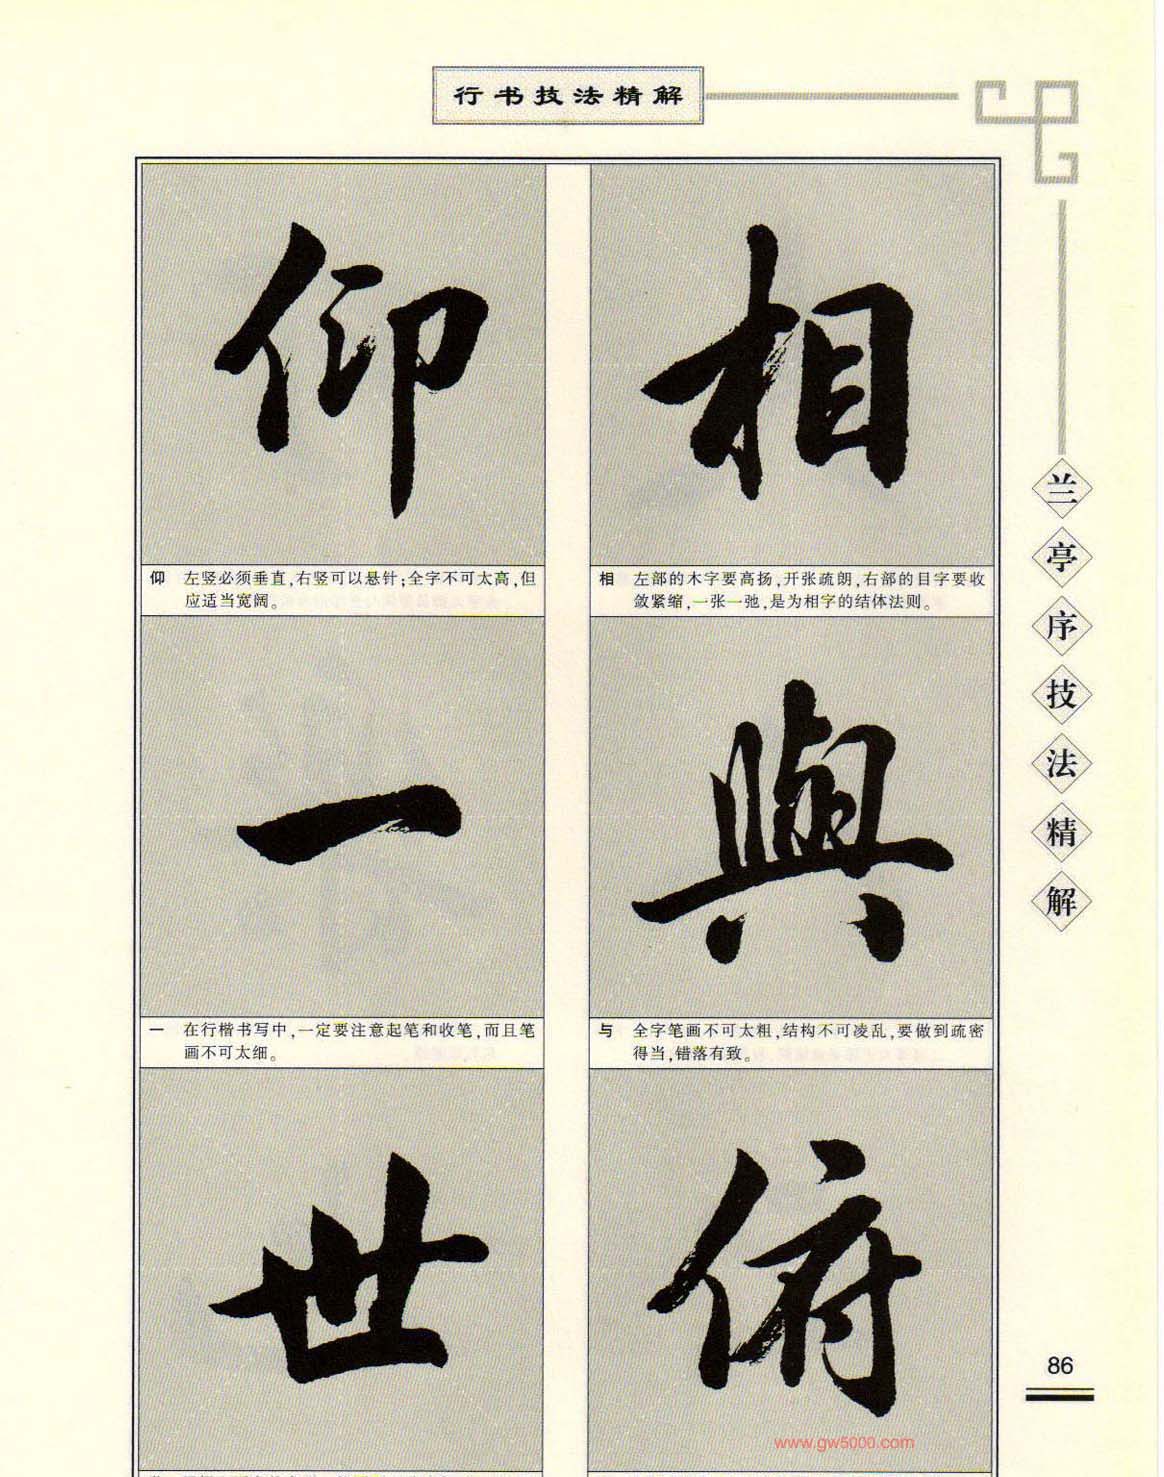 行书技法精解
相
相 左部的木字要高扬,开张疏朗,右部的目字要收
敛紧缩,一张一弛,是为相字的结体法则。
與
与 全字笔画不可太粗,结构不可凌乱,要做到疏密
得当,错落有致。
俯
仰
仰 左竖必须垂直,右竖可以悬针;全字不可太高,但
应适当宽阔。
一
一 在行楷书写中,一定要注意起笔和收笔,而且笔
画不可太细。
世
兰亭序技法精解
86
www.gw5000.com